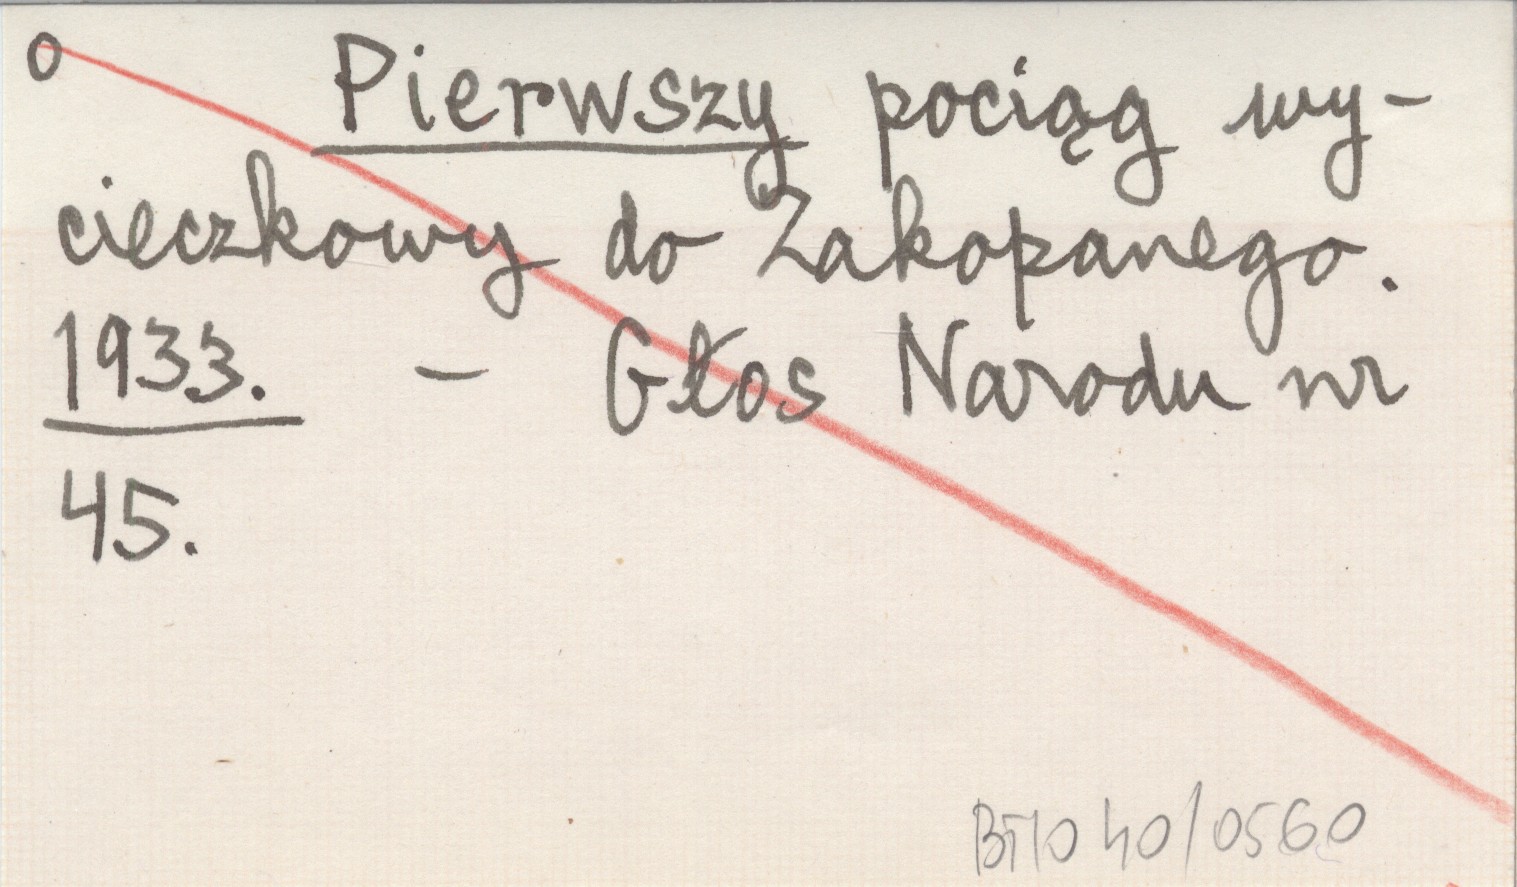 o Pierwszy pociąg wy-
cieczkowy do Zakopanego.
1933. - Głos Narodu nr
45.
40/0560